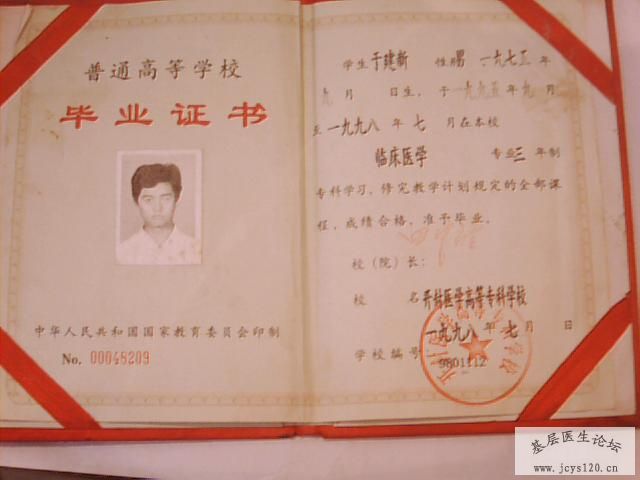 普通高等学校
毕业证书
中华人民共和国国家教育委员会印制
No. 00048209
学生 于建新 性别 男 一九七三 年
九 月 日生，于 一九九五 年 九 月
至 一九九八 年 七 月在本校
临床医学 专业 三 年制
专科学习，修完教学计划规定的全部课
程，成绩合格，准予毕业。
校（院）长：
校 名 开封医学高等专科学校
一九九八 年 七 月 日
学校编号 9801112
基层医生论坛
www.jcys120.cn